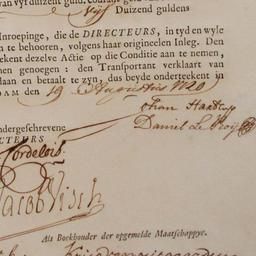 van vyf duizend guld
Vyf Duizend guldens
Inroepinge, die de DIRECTEURS, in tyd en wyle
n te behooren, volgens haar origineelen Inleg. Den
eekent dezelve Actie op die Conditie aan te nemen,
men genoegen: den Transportant verklaart van
daan en betaalt te zyn, dus beyde onderteekent in
DAM den 19 Augustus 1720
Daniel Le Roy
ndergeschrevene
CTEURS
Cordelois.
Jacob Visch
Als Boekhouder der opgemelde Maatschappye.